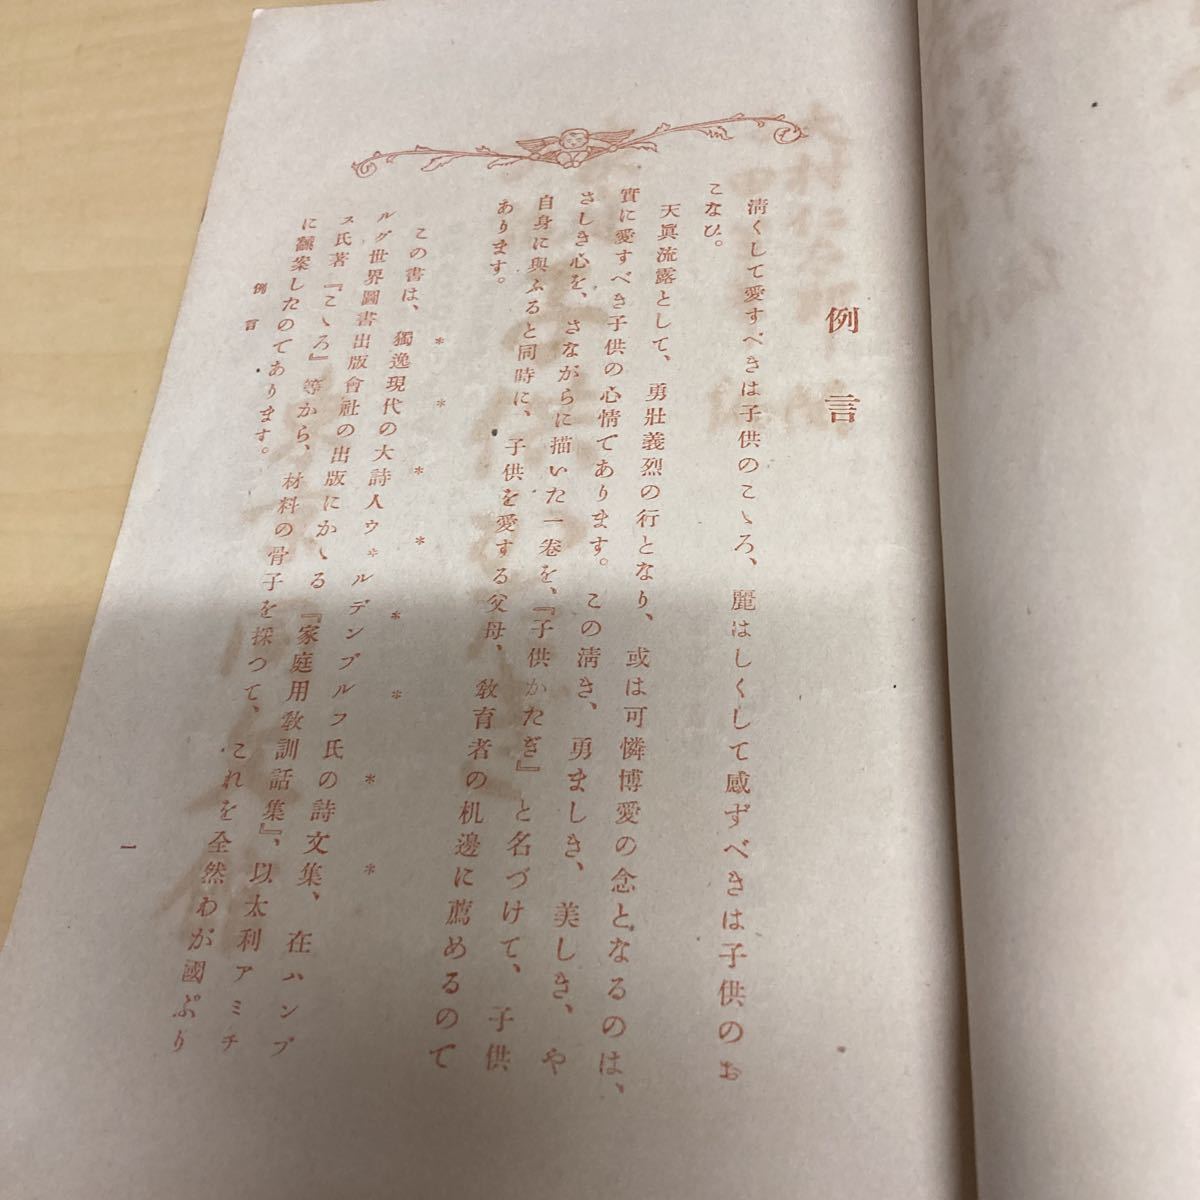 例言
清くして愛すべきは子供のこゝろ、麗はしくして感ずべきは子供のお
こなひ。
天眞流露として、勇壯義烈の行となり、或は可憐博愛の念となるのは、
實に愛すべき子供の心情であります。この清き、勇ましき、美しき、や
さしき心を、さながらに描いた一卷を、『子供かたぎ』と名づけて、子供
自身に與ふると同時に、子供を愛する父母、敎育者の机邊に薦めるので
あります。
* * * * * * * *
この書は、獨逸現代の大詩人ウヰルデンブルフ氏の詩文集、在ハンブ
ルグ世界圖書出版會社の出版にかゝる『家庭用敎訓話集』、以太利アミチ
ス氏著『こゝろ』等から、材料の骨子を採つて、これを全然わが國ぶり
に飜案したのであります。
例言
一